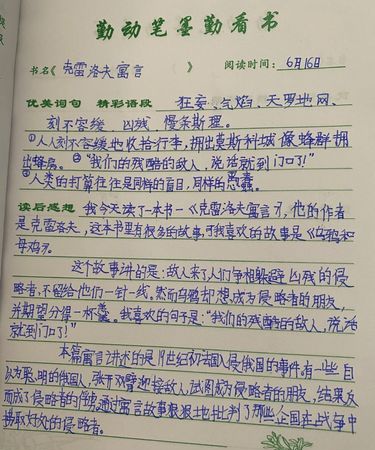 勤动笔墨勤看书
书名《克雷洛夫寓言》 阅读时间：6月16日
优美词句 精彩语段 狂妄、气焰、天罗地网、
刻不容缓、凶残、慢条斯理。
①人人刻不容缓地收拾行李，拥出莫斯科城像蜂群拥
出蜂房。②"我们的残酷的敌人，说话就到门口了!"
③人类的打算往往是同样的盲目，同样的愚蠢。
读后感想 我今天读了一本书—《克雷洛夫寓言》，他的作者
是克雷洛夫，这本书里有很多的故事，可我喜欢的故事是《乌鸦和
母鸡》。
这个故事讲的是：敌人来了人们争相躲避凶残的侵
略者，不留给他们一针一线。然而乌鸦却想成为侵略者的朋友，
并期望分得一杯羹。我喜欢的句子是："我们的残酷的敌人，说话
就到门口了!"
本篇寓言讲述的是19世纪初法国入侵俄国的事件，有一些自
以为聪明的俄国人，张开双臂迎接敌人试图成为侵略者的朋友，结果反
而成了侵略者的俘虏，通过寓言故事狠狠地批判了那些企图在战争中
捞取好处的侵略者。